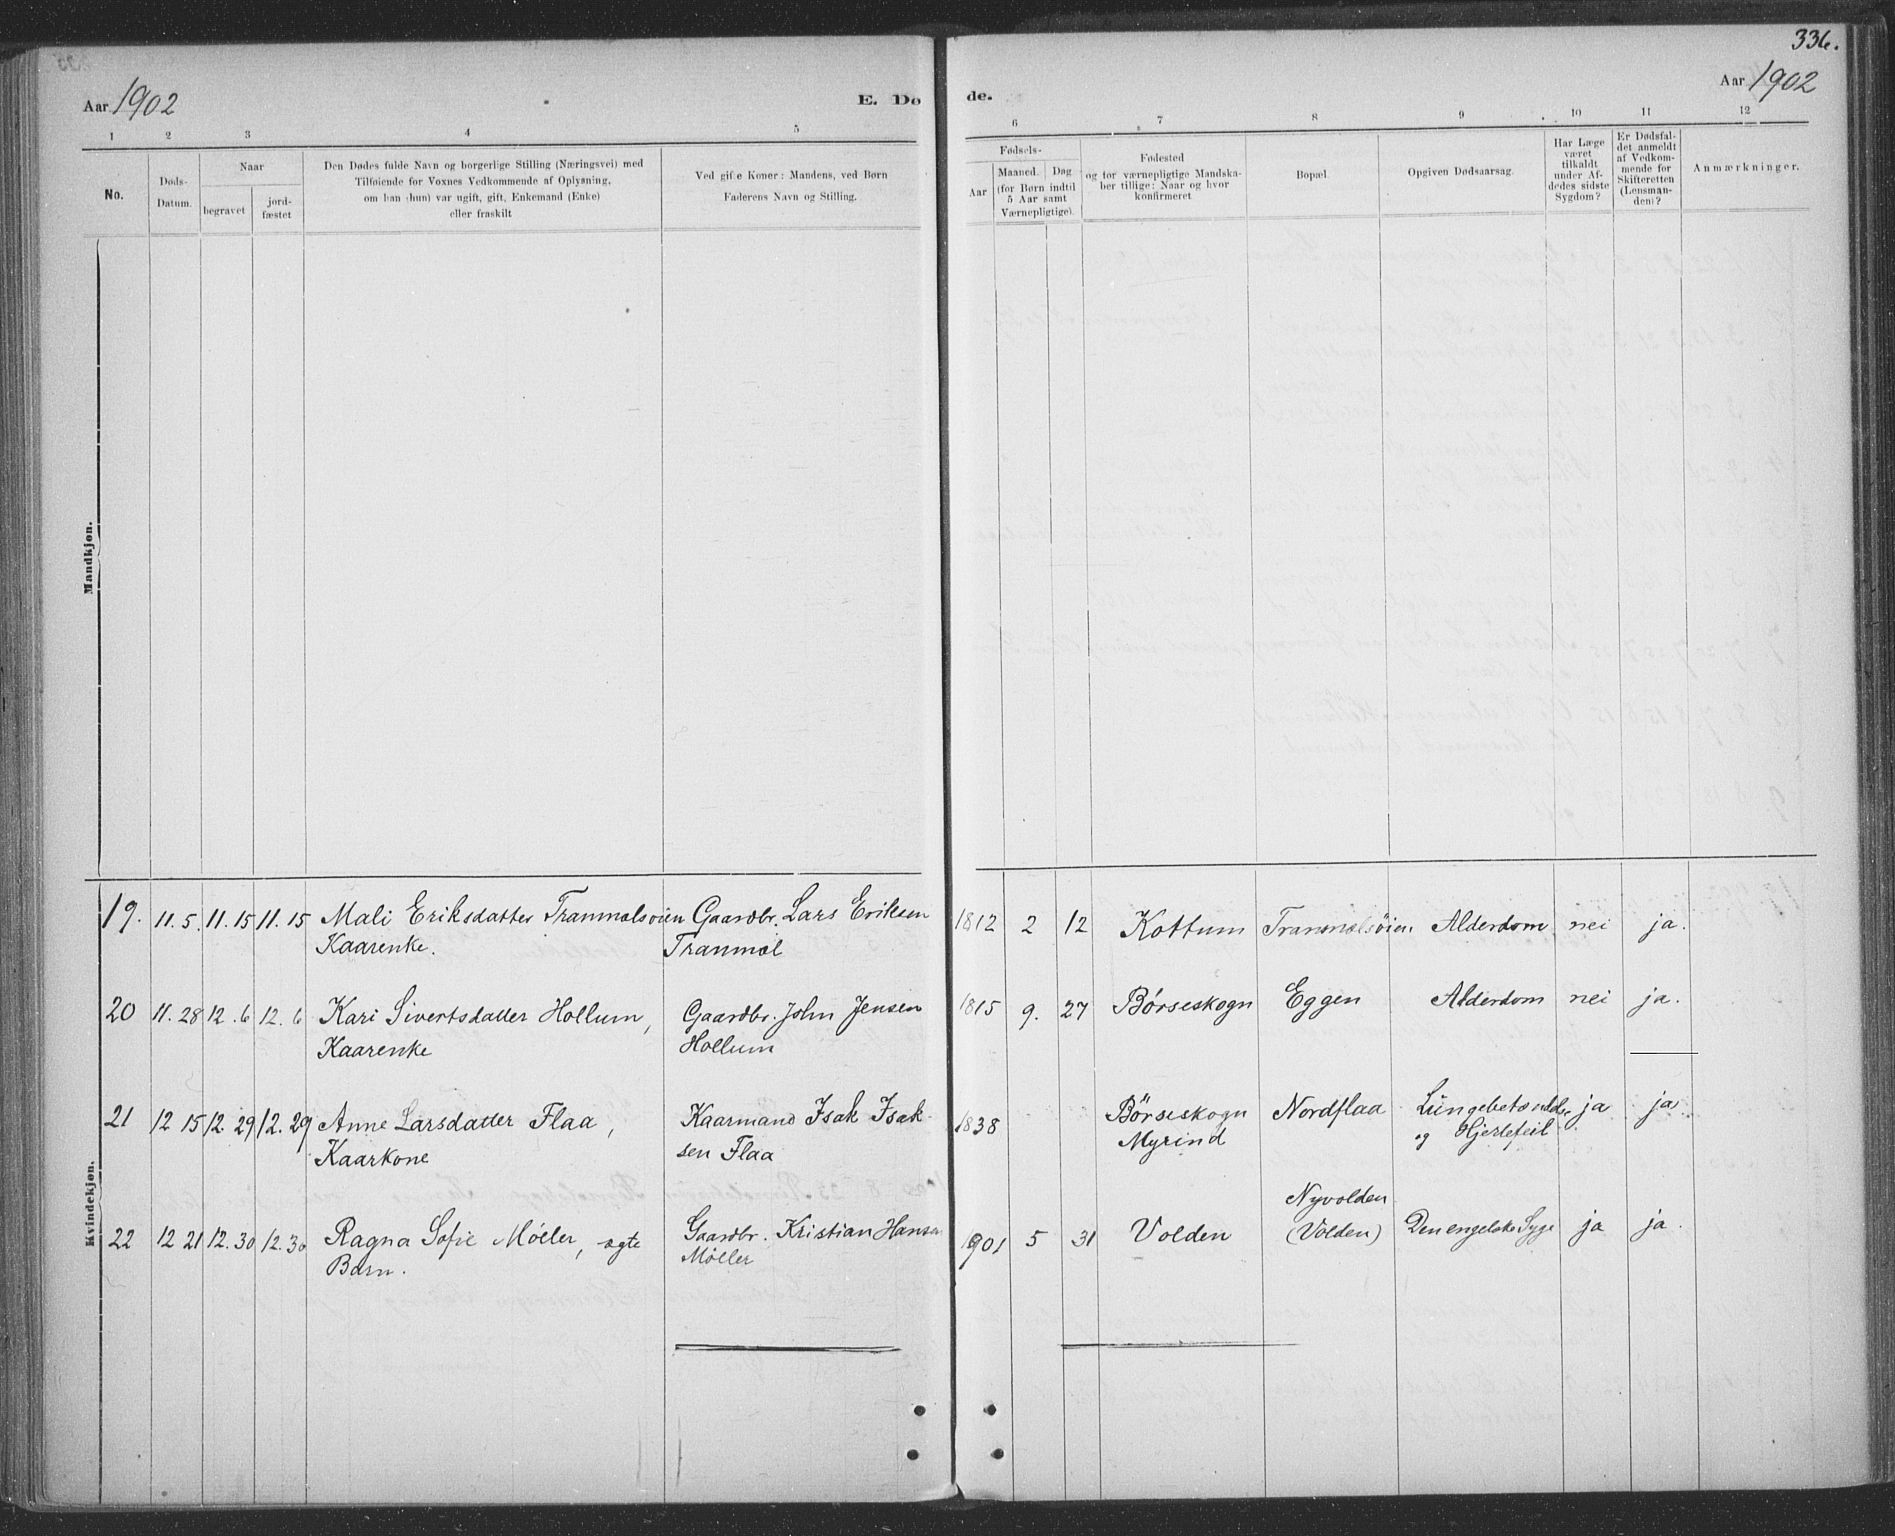 336.
Aar 1902
E. Dø de.
Aar 1902
1 2 3 4 5 6 7 8 9 10 11 12
No.
Døds-
Datum.
Naar
begravet
jord-
fæstet
Den Dødes fulde Navn og borgerlige Stilling (Næringsvei) med
Tilføiende for Voxnes Vedkommende af Oplysning,
om han (hun) var ugift, gift, Enkemand (Enke)
eller fraskilt
Ved gifte Koner: Mandens, ved Børn
Faderens Navn og Stilling.
Fødsels-
Aar
Maaned. Dag
(for Børn indtil
5 Aar samt
Værnepligtige).
Fødested
og for værnepligtige Mandska-
ber tillige: Naar og hvor
konfirmeret
Bopæl.
Opgiven Dødsaarsag.
Har Læge
været
tilkaldt
under Af-
dødes sidste
Sygdom?
Er Dødsfal-
det anmeldt
af Vedkom-
mende for
Skifteretten
(Lensman-
den)?
Anmærkninger.
Mandkjøn.
Kvindekjøn.
19. 11. 5. 11. 15 11. 15 Mali Eriksdatter Tranmælsøien Gaardbr. Lars Eriksen 1812 2 12 Kottum Tranmælsøien Alderdom nei ja.
Kaarenke. Tranmæl
20 11. 28 12. 6 12. 6 Kari Sivertsdatter Hollum, Gaardbr. John Jensen 1815 9. 27 Børseskogn Eggen Alderdom nei ja.
Kaarenke Hollum
21 12 15 12. 29 12. 29 Anne Larsdatter Flaa, Kaarmand Isak Isak- 1838 Børseskogn Nordflaa Lungebetændelse ja ja.
Kaarkone sen Flaa Myrind og Hjertefeil
Nyvolden
22 12 21 12. 30 12. 30 Ragna Sofie Möller, ægte Gaardbr. Kristian Hansen 1901 5 31 Volden (Volden) Den engelske Syge ja ja.
Barn. Möller